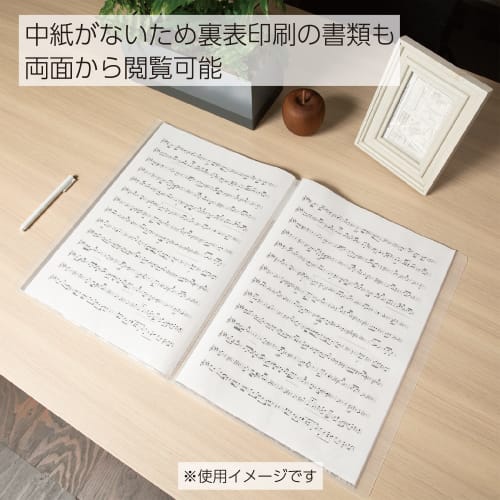 中紙がないため裏表印刷の書類も
両面から閲覧可能
※使用イメージです